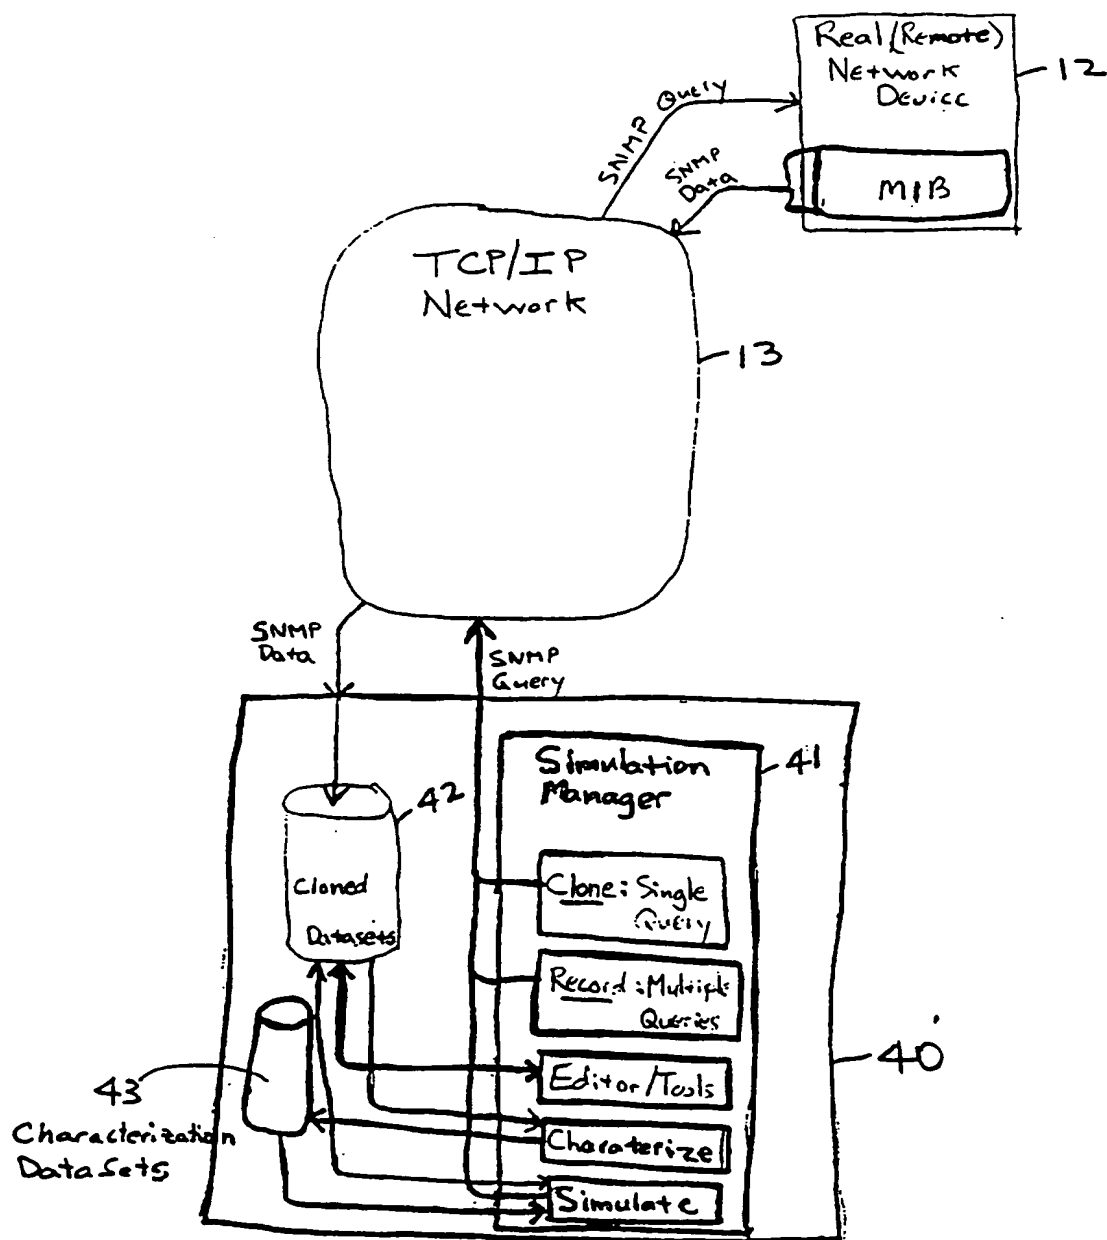 Real (Remote)
Network
Device
12
MIB
SNMP Query
SNMP
Data
TCP/IP
Network
13
SNMP
Data
SNMP
Query
Simulation
Manager
41
42
Cloned
Datasets
Clone: Single
Query
Record: Multiple
Queries
Editor/Tools
Charaterize
Simulate
40
43
Characterization
DataSets